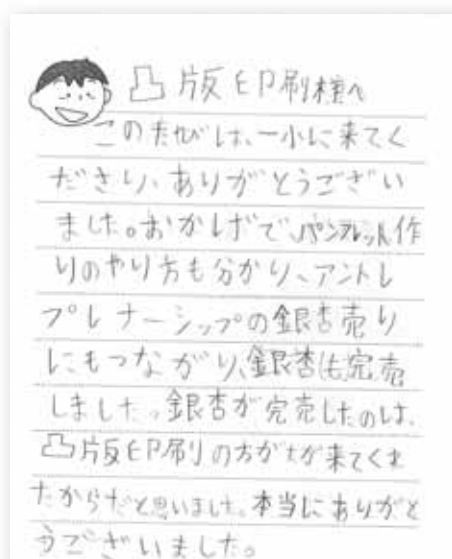 凸版印刷様へ
このたびは、一小に来てく
ださり、ありがとうござい
ました。おかげで、パンフレット作
りのやり方も分かり、アントレ
プレナーシップの銀杏売り
にもつながり、銀杏も完売
しました。銀杏が完売したのは、
凸版印刷りの方がたが来てくれ
たからだと思いました。本当にありがと
うございました。